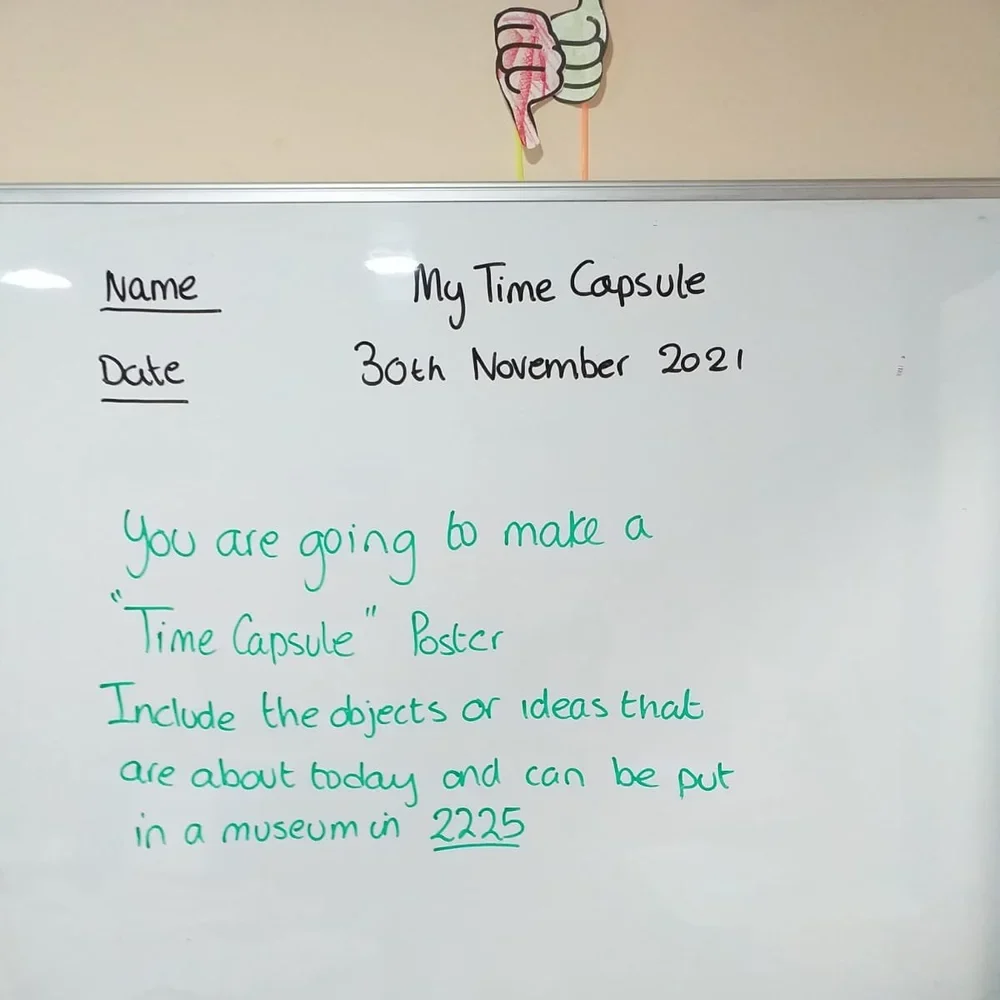 Name My Time Capsule
Date 30th November 2021
You are going to make a
"Time Capsule" Poster
Include the objects or ideas that
are about today and can be put
in a museum in 2225